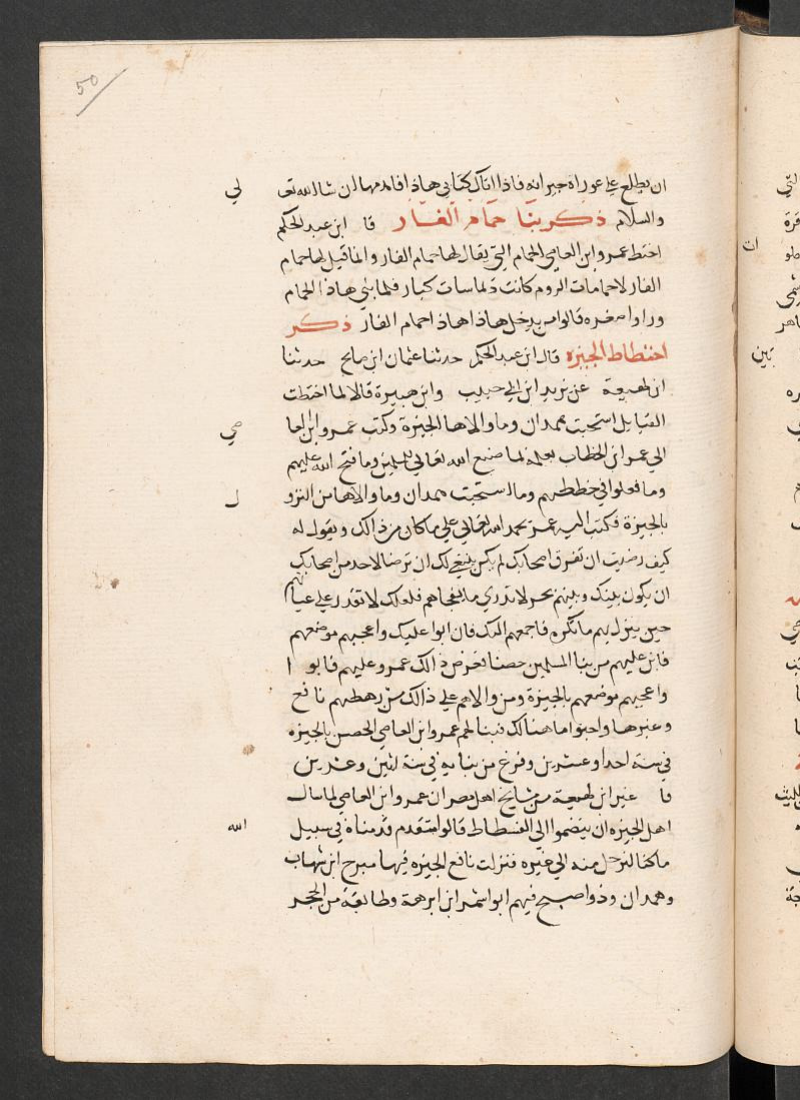 50
ان يطلع على عوراة جيرانه فاذا اتاك كتابي هاذا فاهدمها ان شا الله تعا لي
والسلام ذكر بنا حمام الفار قا ابن عبد الحكم
اختط عمرو ابن العاصي الحمام التي يقال لها حمام الفار وانما قيل لها حمام
الفار لا حمامات الروم كانت ديماسات كبار فلما بني هاذا الحمام
وراوا صغره قالوا من يدخل هاذا هاذا حمام الفار ذكر
اختطاط الجيزه قال ابن عبد الحكم حدثنا عثمان ابن صالح حدثنا
ابن لهيعة عن يزيد ابن ابي حبيب وابن هبيرة قالا لما اختطت
القبايل استحبت همدان وما والاها الجيزة وكتب عمرو ابن العا صي
الي عمر ابن الخطاب يعلمه بما صنع الله تعالي للمسلمين وما فتح الله عليهم
وما فعلوا في خططهم وما استحبت همدان وما والاها من النزو ل
بالجيزة فكتب اليه عمر يحمد الله تعالي علي ما كان من ذالك ويقول له
كيف رضيت ان تفرق اصحابك لم يكن ينبغي لك ان ترضا لاحد من اصحابك
ان يكون بينك وبينهم بحر لا تدري ما يفجاهم فلعلك لا تقدر علي غياثهم
حين ينزل بهم ما تكره فاجمعهم اليك فان ابوا عليك واعجبهم موضعهم
فابن عليهم من بنا المسلمين حصنا فعرض ذالك عمرو عليهم فابو ا
واعجبهم موضعهم بالجيزة ومن والاهم علي ذالك من رهطهم نافع
وغيرها واحبوا ما هنالك فبنا لهم عمرو ابن العاصي الحصن بالجيزه
في سنة احدا وعشرين وفرغ من بنايه في سنة اثنين وعشرين
قا غير ابن لهيعة من مشايخ اهل مصر ان عمرو ابن العاصي لما سال
اهل الجيزه ان ينضموا الي الفسطاط قالوا متقدم قدمناه في سبيل الله
ما كنا لنرحل منه الي غيره فنزلت نافع الجيزه فيها مبرح ابن شهاب
وهمدان وذو اصبح فيهم ابو اشمر ابن ابرهة وطايفة من الحجر